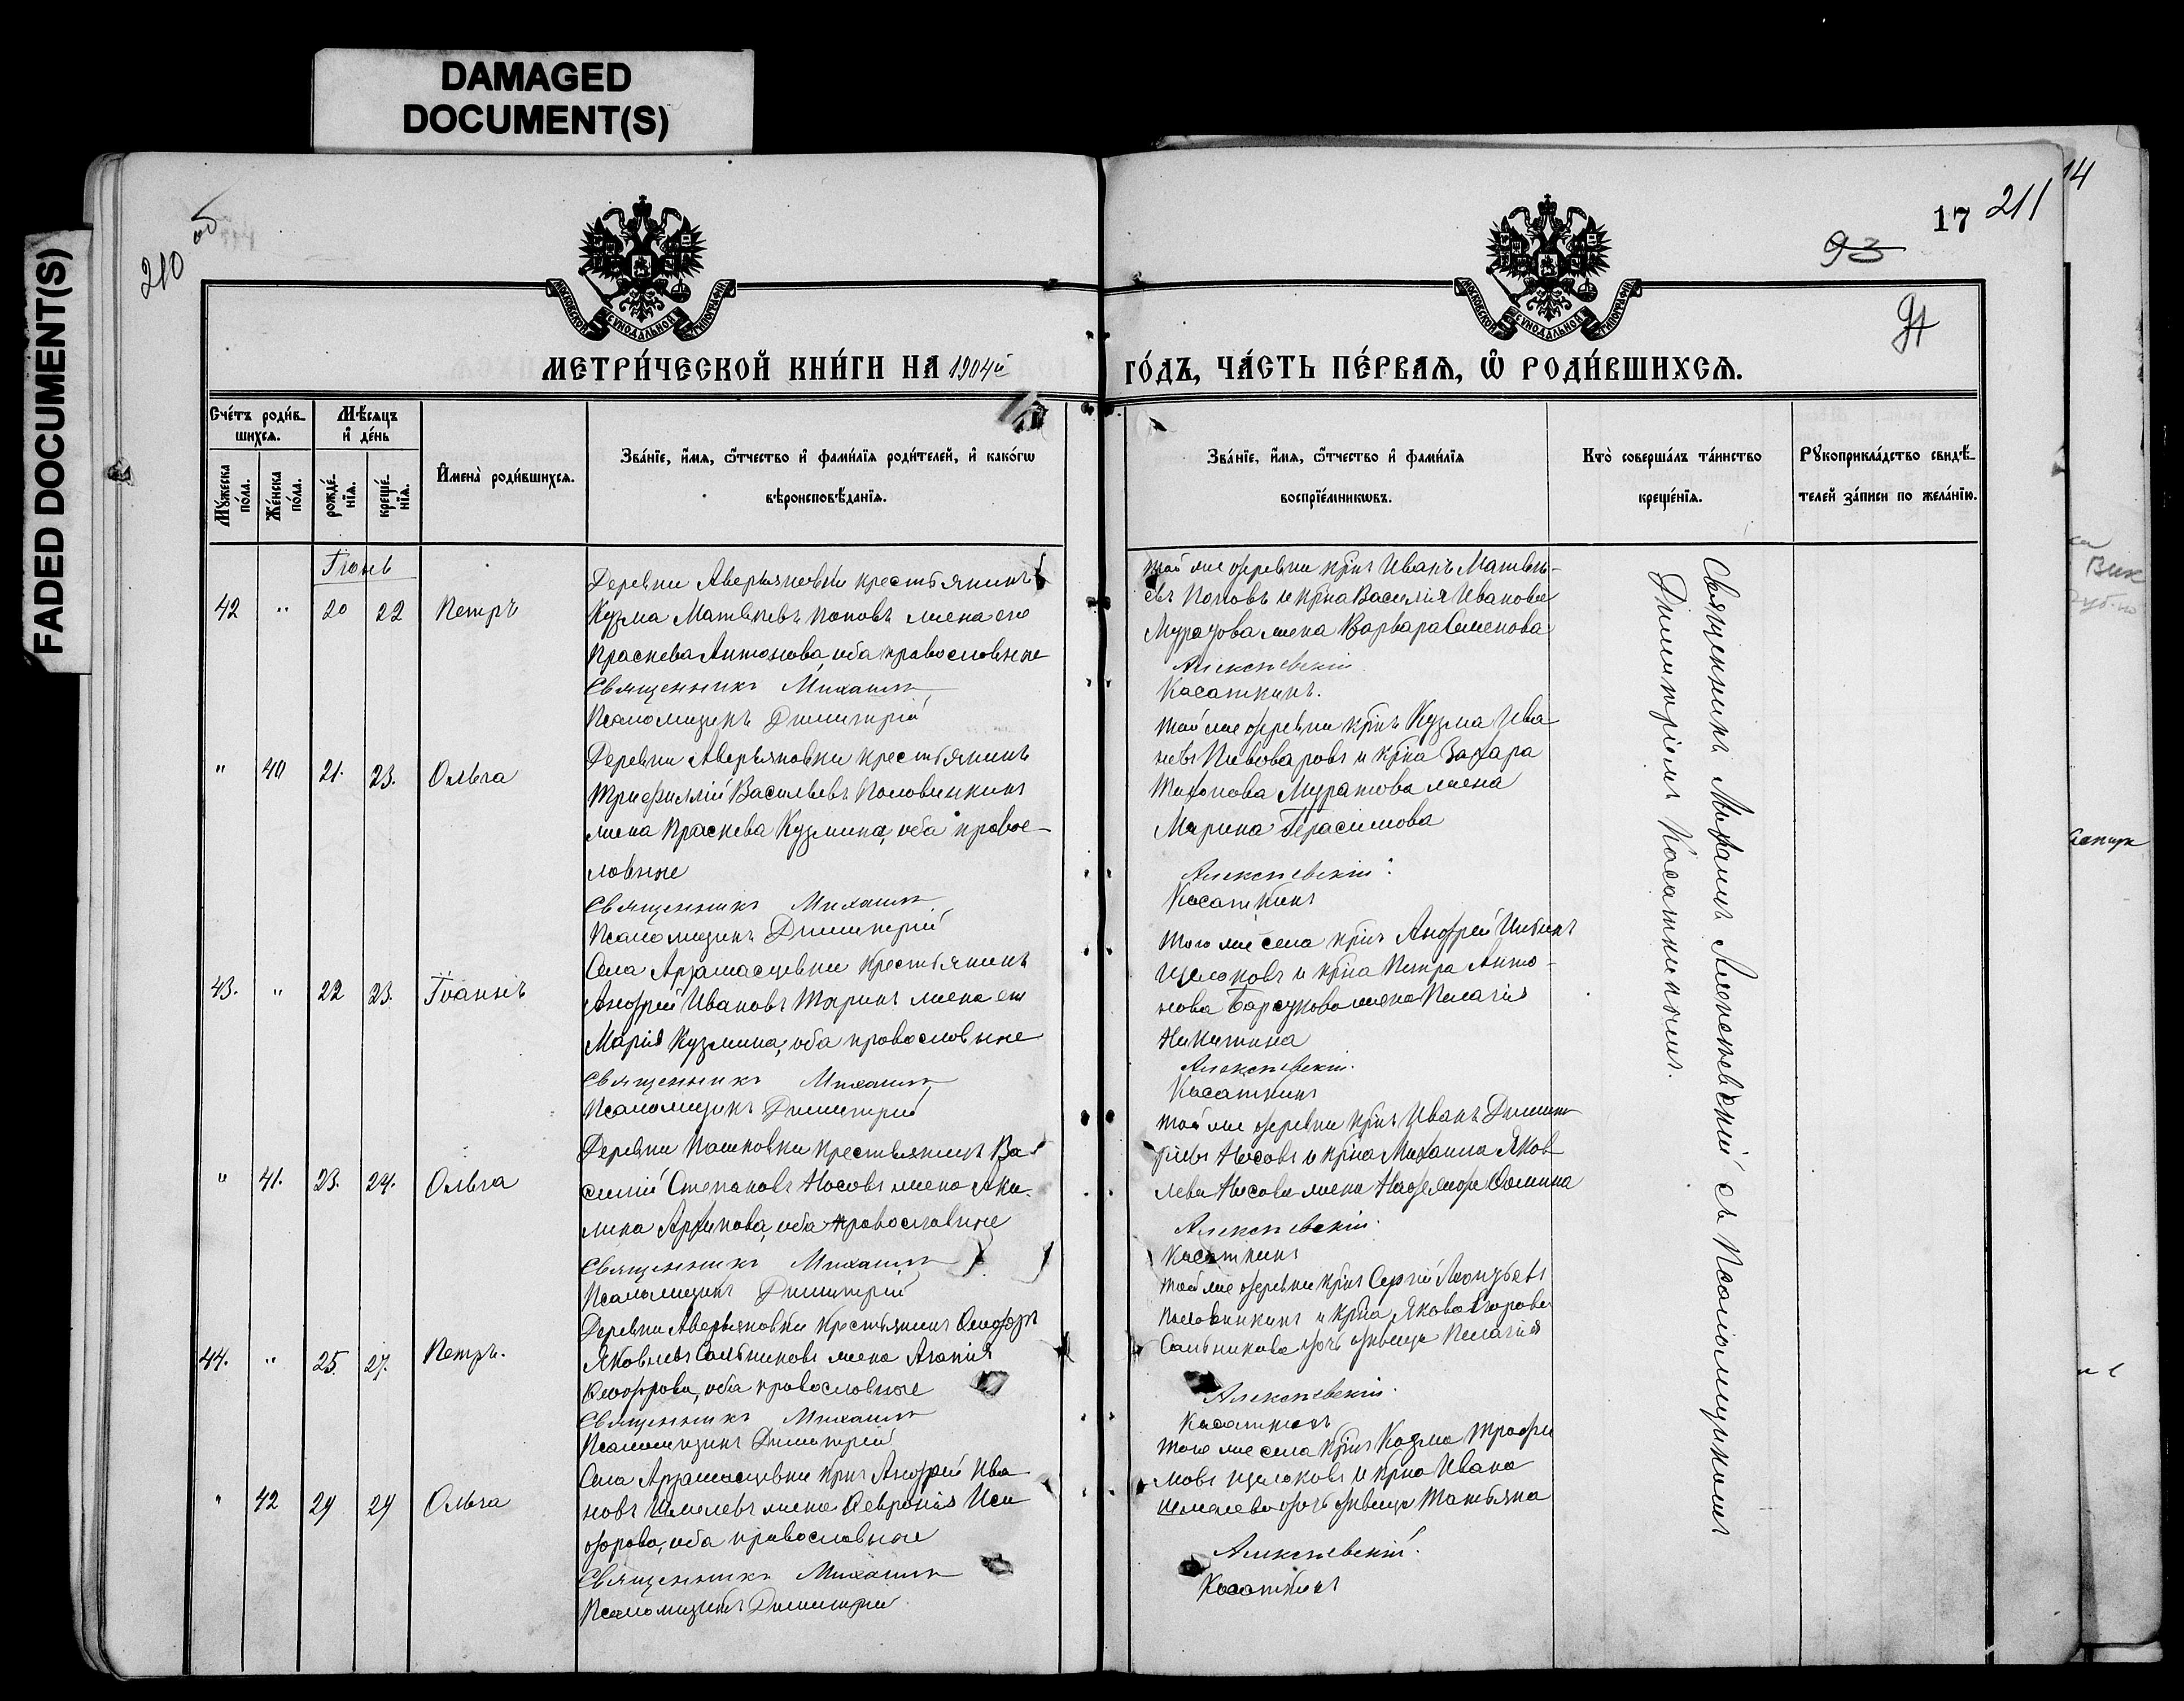 DAMAGED
DOCUMENT(S)
FADED DOCUMENT(S)
210 об
17
211
14
93
94
МЕТРИ́ЧЕСКОЙ КНИ́ГИ НА 1904й
ГО́ДЪ, ЧА́СТЬ ПЕ́РВАѦ, Ѡ҆ РОДИ́ВШИХСѦ.
Сче́тъ роди́в-
шихсѧ.
Мꙋ́жеска по́ла.
Же́нска по́ла.
Мѣ́сѧцъ
и҆ де́нь
рожде́-
нїѧ.
креще́-
нїѧ.
И҆мена̀ роди́вшихсѧ.
Зва́нїе, и҆́мѧ, ѻ҆́тчество и҆ фами́лїѧ роди́телей, и҆ како́гѡ
вѣроисповѣ́данїѧ.
Зва́нїе, и҆́мѧ, ѻ҆́тчество и҆ фами́лїѧ
воспрїе́мникѡвъ.
Кто̀ соверша́лъ та́инство
креще́нїѧ.
Рꙋкоприкла́дство свидѣ́-
телей за́писи по жела́нїю.
Іюнь
42 " 20 22 Петръ
Деревни Аверьяновки крестьянинъ
Кузма Матвѣевъ Поповъ жена его
Праскева Антонова, оба православные
Священникъ Михаилъ
Псаломщикъ Димитрій
той же деревни кр͠нъ Иванъ Матвѣ-
евъ Поповъ и кр͠на Василія Иванова
Муратова жена Варвара Семенова
Алексѣевскій
Касаткинъ.
" 40 21. 23. Ольга
Деревни Аверьяновки крестьянинъ
Трифиллій Васильевъ Половинкинъ
жена Праскева Кузмина, оба правос-
лавные
Священникъ Михаилъ
Псаломщикъ Димитрій
той же деревни кр͠нъ Кузма Ива-
новъ Пивоваровъ и кр͠на Захара
Тихонова Муратова жена
Марина Герасимова
Алексѣевскій
Касаткинъ
43. " 22 23. Іоаннъ
Села Арзамасцевки крестьянинъ
Андрей Ивановъ Тюринъ жена его
Марія Кузмина, оба православные
Священникъ Михаилъ
Псаломщикъ Димитрій
того же села кр͠нъ Андрей
Щелоковъ и кр͠на Петра Анто-
нова жена Пелагія
Никитина
Алексѣевскій.
Касаткинъ
" 41. 23. 24. Ольга
Деревни Пашковки крестьянинъ Ва-
силій Степановъ Носовъ жена Аку-
лина Архипова, оба православные
Священникъ Михаилъ
Псаломщикъ Димитрій
той же деревни кр͠нъ Иванъ Димит-
ріевъ Носовъ и кр͠на Михаила Яков-
лева Носова жена Ѳомина
Алексѣевскій.
Касаткинъ
44. " 25. 27. Петръ.
Деревни Аверьяновки крестьянинъ Ѳеодоръ
Яковлевъ Сальниковъ жена Агапія
Ѳеодорова, оба православные
Священникъ Михаилъ
Псаломщикъ Димитрій
той же деревни кр͠нъ Сергій Леонтьевъ
Половинкинъ и кр͠на Якова Егорова
Сальникова дочь дѣвица Пелагія
Алексѣевскій.
Касаткинъ
" 42 29 29 Ольга
Села Арзамасцевки кр͠нъ Андрей Ива-
новъ Шмелевъ жена Ѳевронія Иси-
дорова, оба православные
Священникъ Михаилъ
Псаломщикъ Димитрій
того же села кр͠нъ Козма Трофи-
мовъ Щелоковъ и кр͠на Ивана
Шмелева дочь дѣвица Татьяна
Алексѣевскій.
Касаткинъ
Священникъ Михаилъ Алексѣевскій съ Псаломщикомъ
Димитріемъ Касаткинымъ.